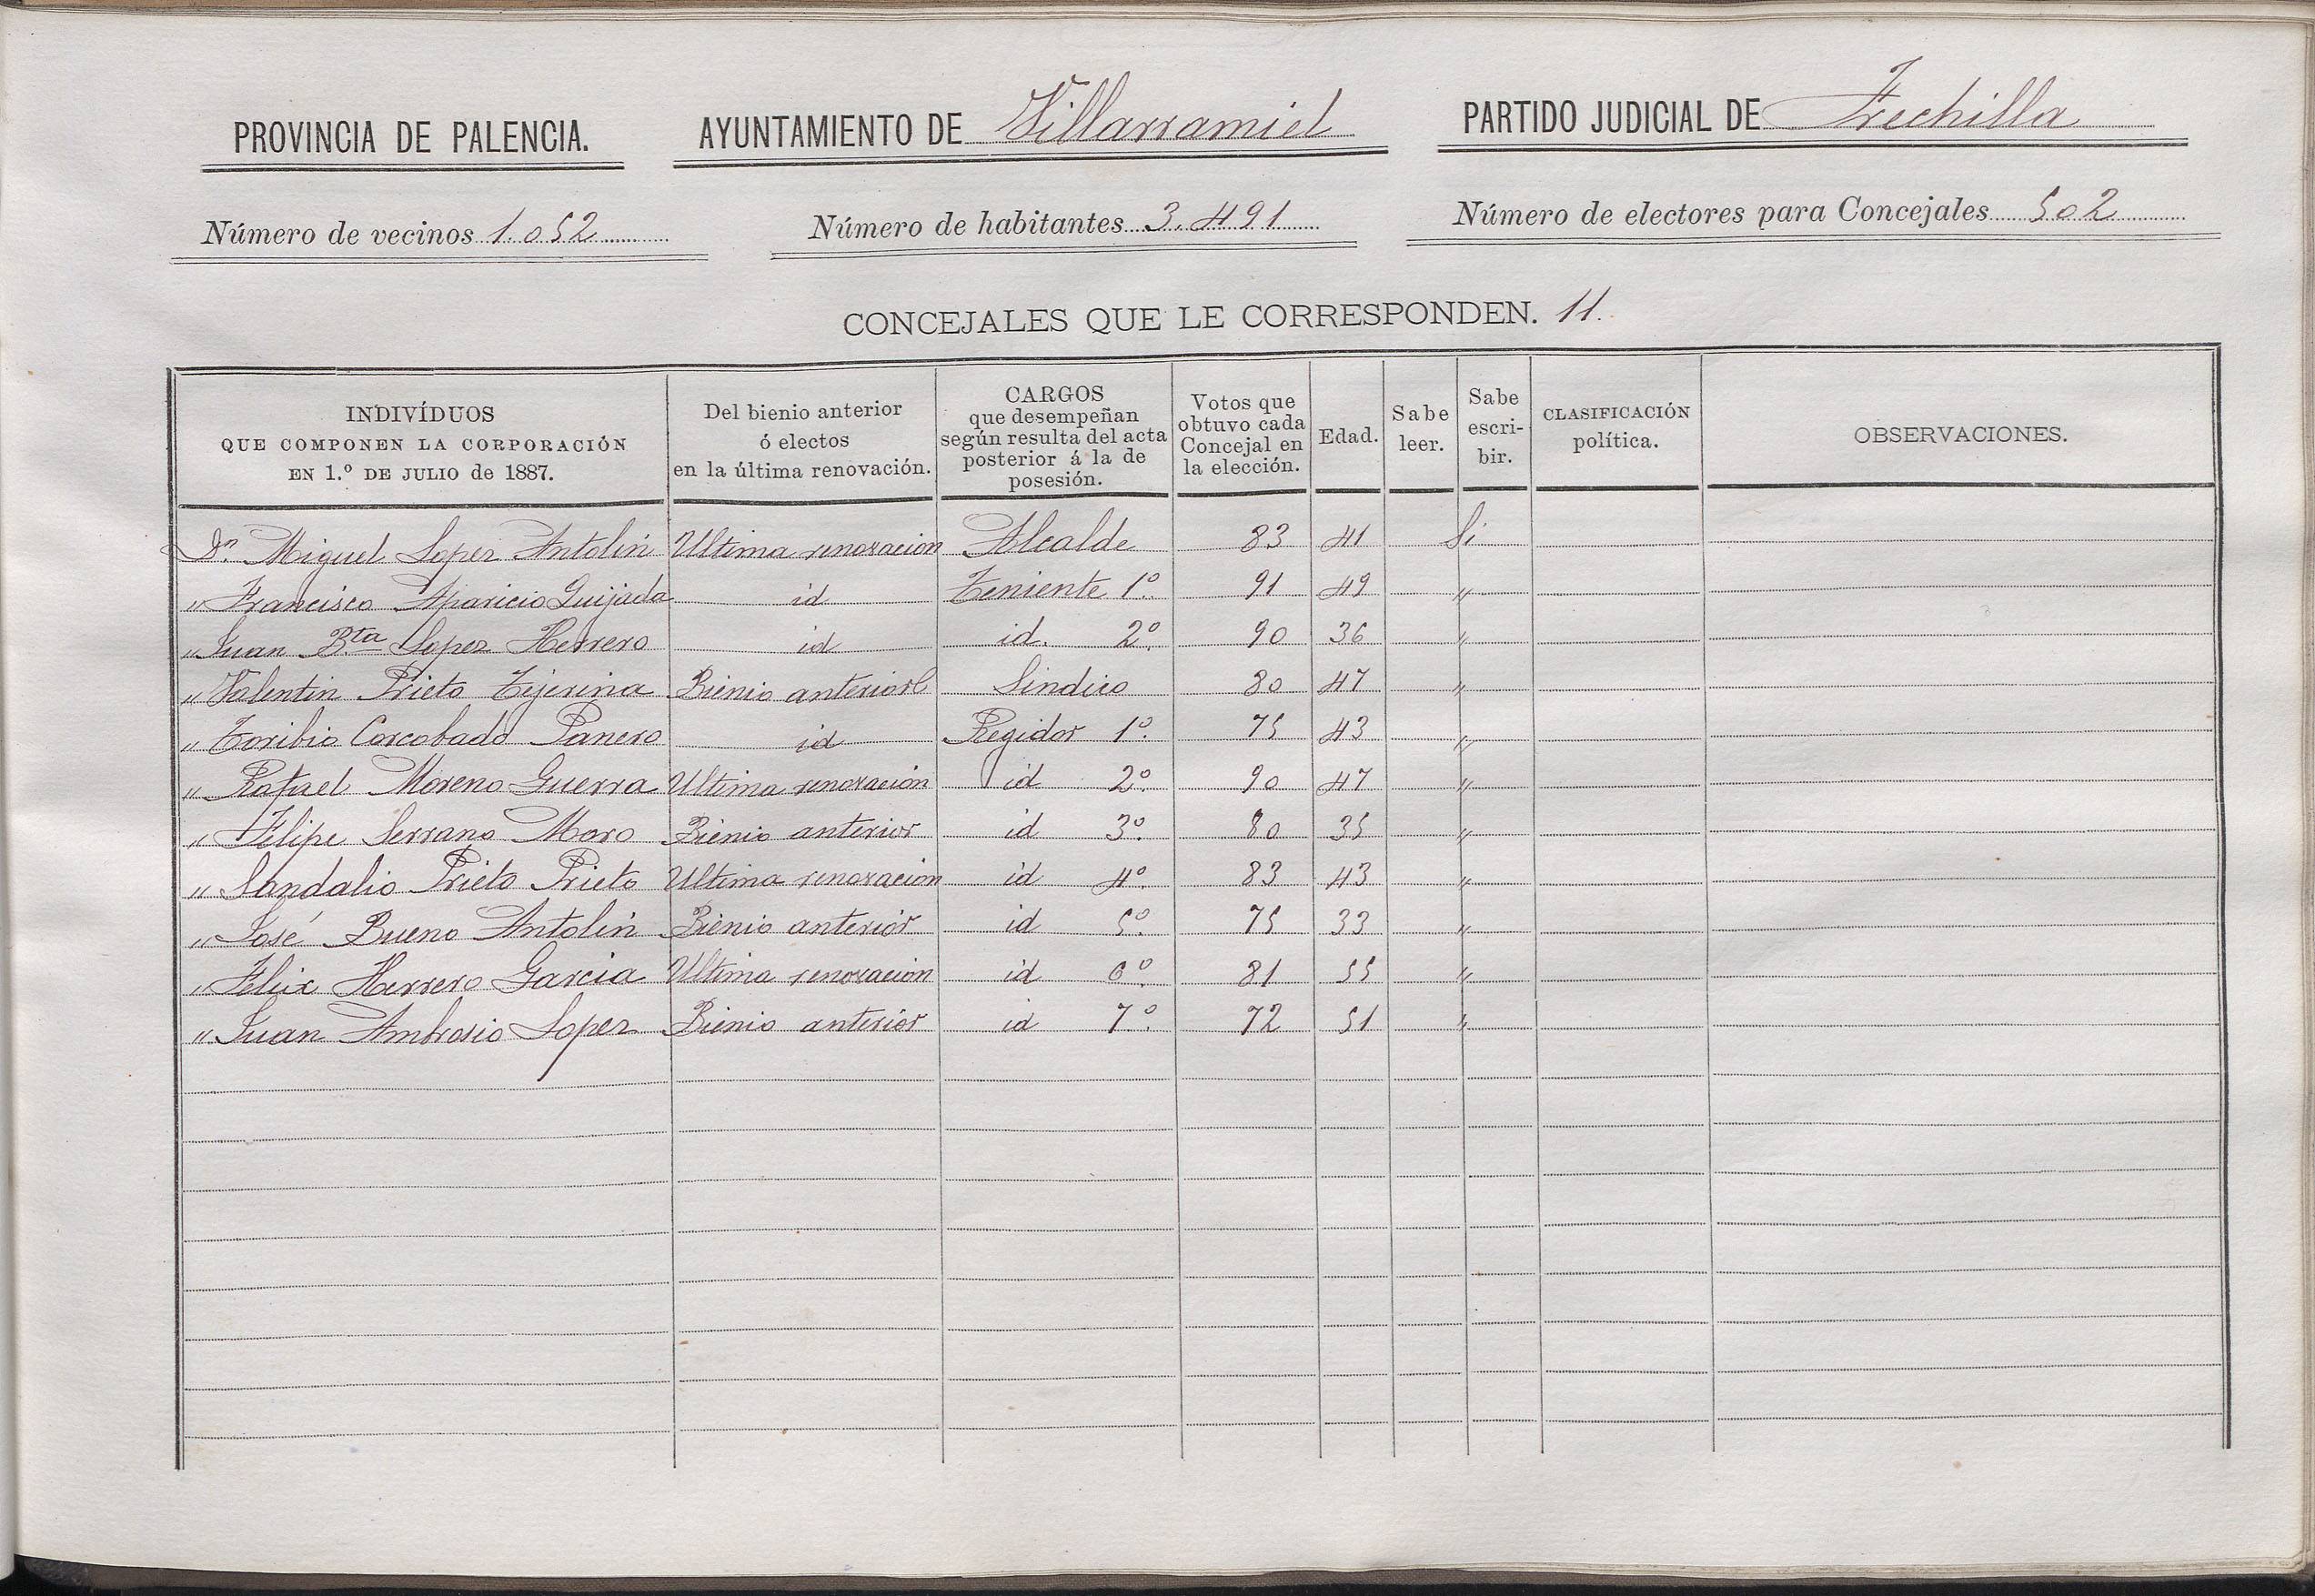 PROVINCIA DE PALENCIA. AYUNTAMIENTO DE Villarramiel PARTIDO JUDICIAL DE Frechilla
Número de vecinos 1.052 Número de habitantes 3.491 Número de electores para Concejales 502
CONCEJALES QUE LE CORRESPONDEN. 11.
INDIVÍDUOS
QUE COMPONEN LA CORPORACIÓN
EN 1.º DE JULIO de 1887.
Del bienio anterior
ó electos
en la última renovación.
CARGOS
que desempeñan
según resulta del acta
posterior á la de
posesión.
Votos que
obtuvo cada
Concejal en
la elección.
Edad.
Sabe
leer.
Sabe
escri-
bir.
CLASIFICACIÓN
política.
OBSERVACIONES.
Dn. Miguel Lopez Antolin Ultima renovacion Alcalde 83 41 Si
" Francisco Aparicio Quijada id Teniente 1º. 91 49 "
" Juan Bta Lopez Herrero id id. 2º. 90 36 "
" Valentin Prieto Tejerina Bienio anterior Sindico 80 47 "
" Toribio Corcobado Panero id Regidor 1º. 75 43 "
" Rafael Moreno Guerra Ultima renovación id 2º. 90 47 "
" Felipe Serrano Moro Bienio anterior id 3º. 80 35 "
" Sandalio Prieto Prieto Ultima renovacion id 4º. 83 43 "
" José Bueno Antolin Bienio anterior id 5º. 75 33 "
" Felix Herrero Garcia Ultima renovacion id 6º. 81 55 "
" Juan Ambrosio Lopez Bienio anterior id 7º. 72 51 "